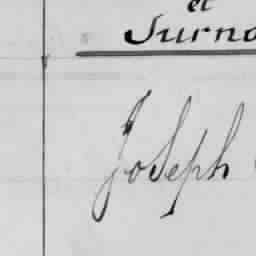 et
Surno
Joseph